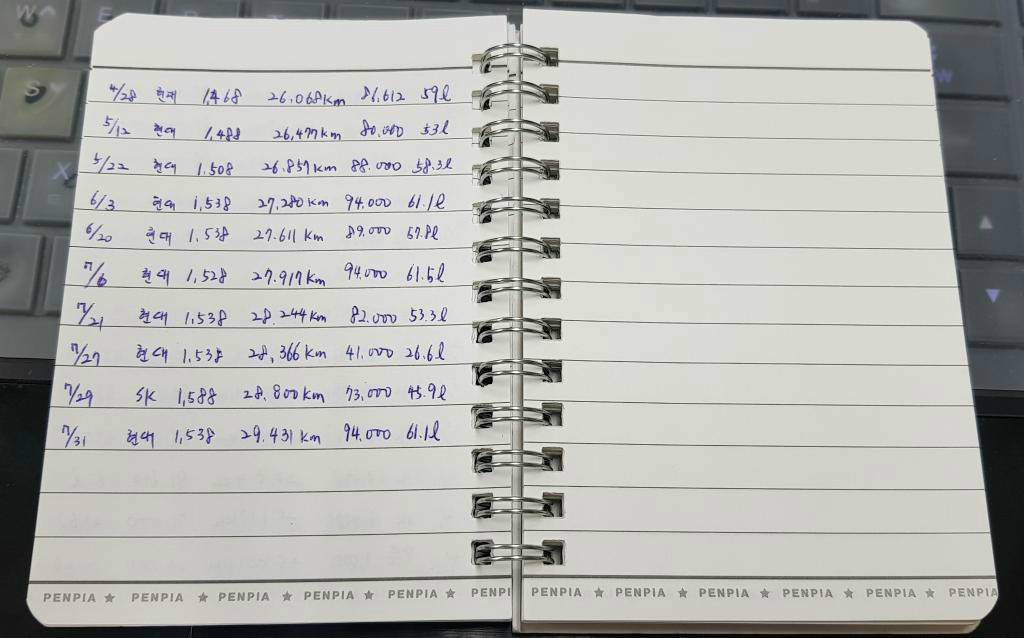 4/28 현대 1,468 26.068km 86,612 59l
5/12 현대 1,488 26,477km 80,000 53l
5/22 현대 1.508 26.857km 88.000 58.3l
6/3 현대 1,538 27,280km 94.000 61.1l
6/20 현대 1.538 27.611km 89.000 57.8l
7/6 현대 1,528 27.917km 94.000 61.5l
7/21 현대 1,538 28.244km 82.000 53.3l
7/27 현대 1.538 28,366km 41.000 26.6l
7/29 SK 1,588 28.800km 73,000 45.9l
7/31 현대 1,538 29.431km 94.000 61.1l
PENPIA ★ PENPIA ★ PENPIA ★ PENPIA ★ PENPIA ★ PENPI
PENPIA ★ PENPIA ★ PENPIA ★ PENPIA ★ PENPIA ★ PENPIA